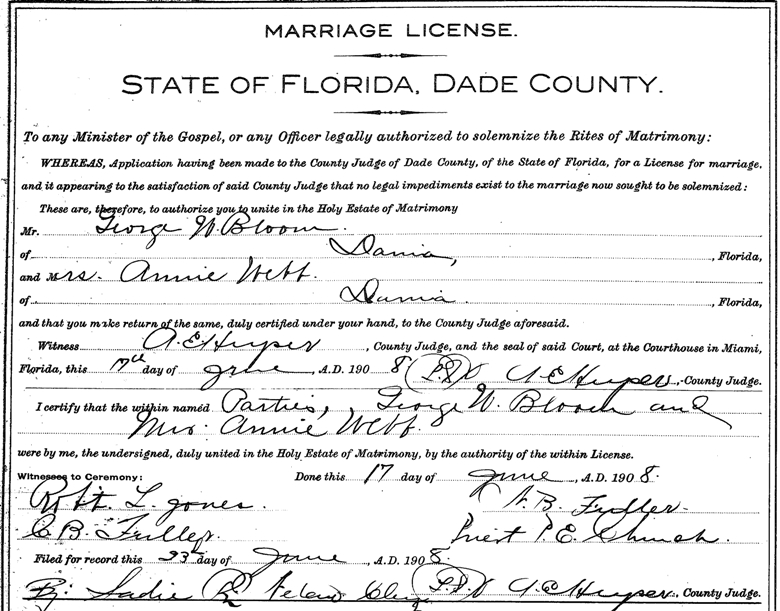 MARRIAGE LICENSE.
STATE OF FLORIDA, DADE COUNTY.
To any Minister of the Gospel, or any Officer legally authorized to solemnize the Rites of Matrimony:
WHEREAS, Application having been made to the County Judge of Dade County, of the State of Florida, for a License for marriage,
and it appearing to the satisfaction of said County Judge that no legal impediments exist to the marriage now sought to be solemnized:
These are, therefore, to authorize you to unite in the Holy Estate of Matrimony
Mr. George W. Bloom.
of Dania, , Florida,
and Mrs. Annie Webb.
of Dania. , Florida,
and that you make return of the same, duly certified under your hand, to the County Judge aforesaid.
Witness A. E. Heyser , County Judge, and the seal of said Court, at the Courthouse in Miami,
Florida, this 17th day of June , A.D. 190 8 (L.S.) A. E. Heyser, County Judge.
I certify that the within named Parties, , George W. Bloom and
Mrs. Annie Webb.
were by me, the undersigned, duly united in the Holy Estate of Matrimony, by the authority of the within License.
Witnesses to Ceremony: Done this 17 day of June , A.D. 190 8.
Robt. L. Jones. A. B. Fuller.
C. B. Fuller. Priest P. E. Church.
Filed for record this 23 day of June , A.D. 190 8.
By: Sadie (L.S.) A. E. Heyser, County Judge.